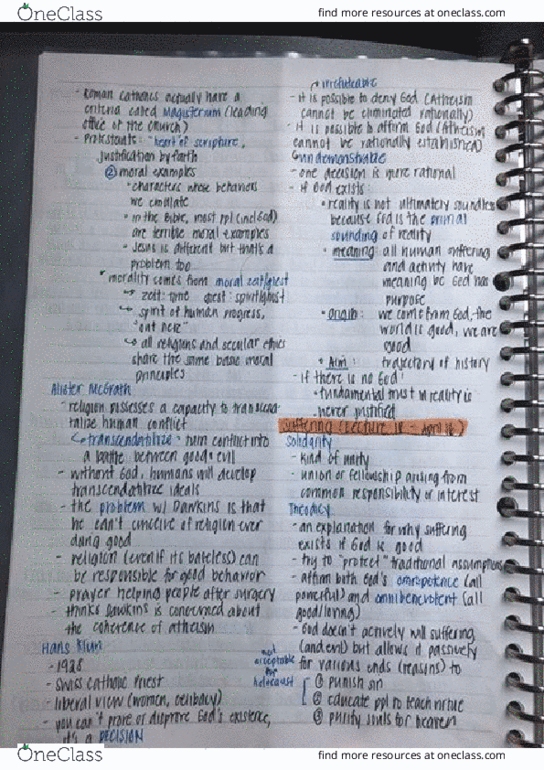 OneClass
find more resources at oneclass.com
- Roman Catholics actually have a
criteria called Magisterium (leading
office of the church)
- Protestants: "heart of scripture,
justification by faith
② moral examples
• characters whose behaviors
we emulate
• in the Bible, most ppl (incl God)
are terrible moral examples
• Jesus is different but that's a
problem too
• morality comes from moral zeitgeist
↳ zeit: time geist: spirit/ghost
↳ spirit of human progress,
"out here"
↳ all religions and secular ethics
share the same basic moral
principles
Alister McGrath
- religion possesses a capacity to transcend-
talize human conflict
↳ transcendentalize: turn conflict into
a battle between good & evil
- without God, humans will develop
transcendental ideals
- the problem w/ Dawkins is that
he can't conceive of religion ever
doing good
- religion (even if its baseless) can
be responsible for good behavior
- prayer helping people after surgery
- thinks Dawkins is concerned about
the coherence of atheism
Hans Kung
- 1928
- Swiss Catholic Priest
- liberal view (women, celibacy)
- you can't prove or disprove God's existence,
it's a DECISION
irrefutable
- it is possible to deny God (Atheism
cannot be eliminated rationally)
- it is possible to affirm God (Atheism
cannot be rationally established)
undemonstrable
- one decision is more rational
- if God exists:
• reality is not ultimately
because God is the primal
sounding of reality
• meaning: all human suffering
and activity have
meaning bc God has
purpose
• origin: we come from God, the
world is good, we are
good
• Aim: trajectory of history
- if there is no God:
• fundamental trust in reality is
never justified
Suffering (Lecture 18 - April 16)
Solidarity
- kind of unity
- union or fellowship arising from
common responsibility or interest
Theodicy:
- an explanation for why suffering
exists if God is good
- try to "protect" traditional assumptions
- affirm both God's omnipotence (all
powerful) and omnibenevolent (all
good/loving)
- God doesn't actively will suffering,
(and evil) but allows it passively
for various ends (reasons) to
not acceptable for holocaust
① punish sin
② educate ppl to teach virtue
③ purify souls for heaven
OneClass
find more resources at oneclass.com